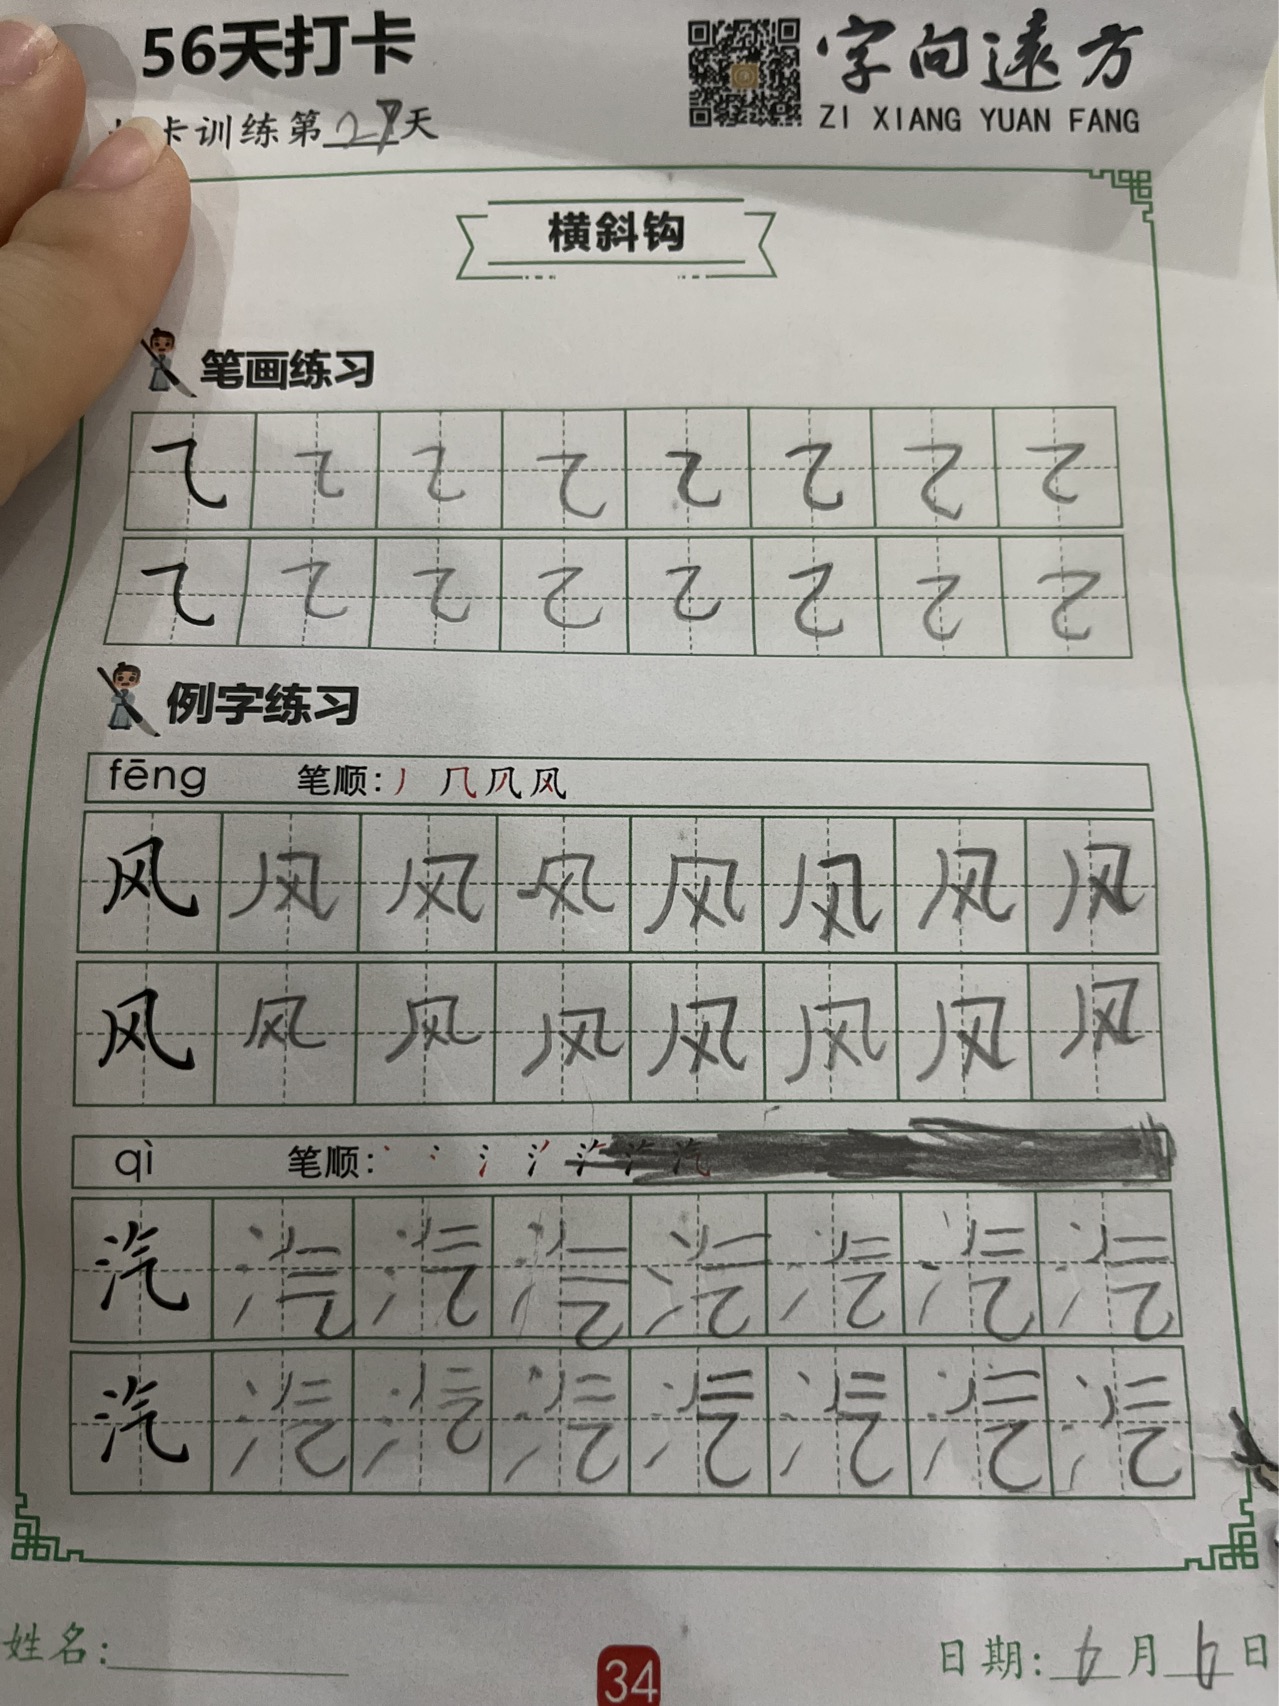 56天打卡
字向远方
ZI XIANG YUAN FANG
卡训练第27天
横斜钩
笔画练习
㇈ ㇈ ㇈ ㇈ ㇈ ㇈ ㇈ ㇈
㇈ ㇈ ㇈ ㇈ ㇈ ㇈ ㇈ ㇈
例字练习
fēng 笔顺: 丿 几 凡 风
风 风 风 风 风 风 风 风
风 风 风 风 风 风 风 风
qì 笔顺: 丶 冫 氵
汽 汽 汽 汽 汽 汽 汽 汽
汽 汽 汽 汽 汽 汽 汽 汽
姓名:
34
日期: 6月6日